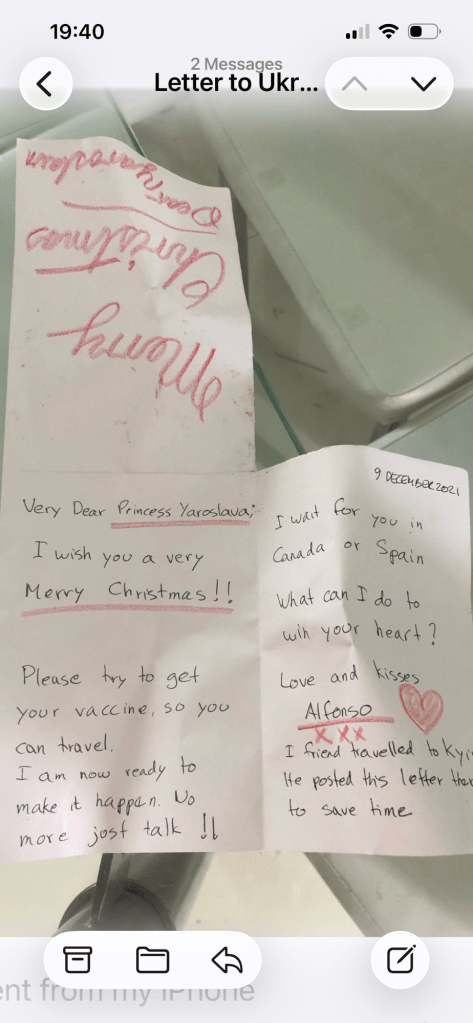 19:40
2 Messages
Letter to Ukr...
Merry
Christmas
Dear Yaroslava
Very Dear Princess Yaroslava;
I wish you a very
Merry Christmas!!
Please try to get
your vaccine, so you
can travel.
I am now ready to
make it happen. No
more just talk !!
9 DECEMBER 2021
I wait for you in
Canada or Spain
What can I do to
win your heart?
Love and kisses
Alfonso
XXX
I friend travelled to Kyi
He posted this letter ther
to save time
ent from my iPhone